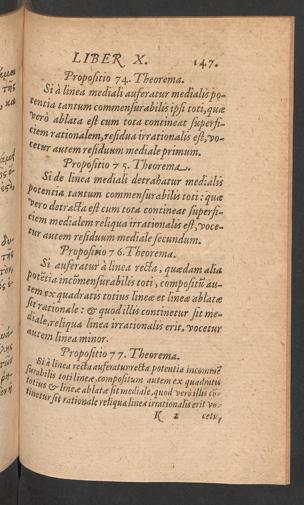 LIBER X. 147.
Propositio 74. Theorema.
Si à linea mediali auferatur medialis po-
tentia tantum commensurabilis ipsi toti, quæ
verò ablata est cum tota contineat superfi-
ciem rationalem, residua irrationalis est, vo-
cetur autem residuum mediale primum.
Propositio 75. Theorema.
Si de linea mediali detrahatur medialis
potentia tantum commensurabilis toti: quæ
vero detracta est cum tota contineat superfi-
ciem medialem reliqua irrationalis est, voce-
tur autem residuum mediale secundum.
Propositio 76. Theorema.
Si auferatur à linea recta, quædam alia
potētia incōmensurabilis toti, compositū au-
tem ex quadratis totius lineæ et lineæ ablatæ
sit rationale: & quod illis continetur sit me-
diale, reliqua linea irrationalis erit, vocetur
autem linea minor.
Propositio 77. Theorema.
Si à linea recta auferatur recta potentia incommē
surabilis toti lineæ, compositum autem ex quadratis
totius & lineæ ablatæ sit mediale, quod verò illis cō-
tinetur sit rationale reliqua linea irrationalis erit vo-
K 2 cetur,